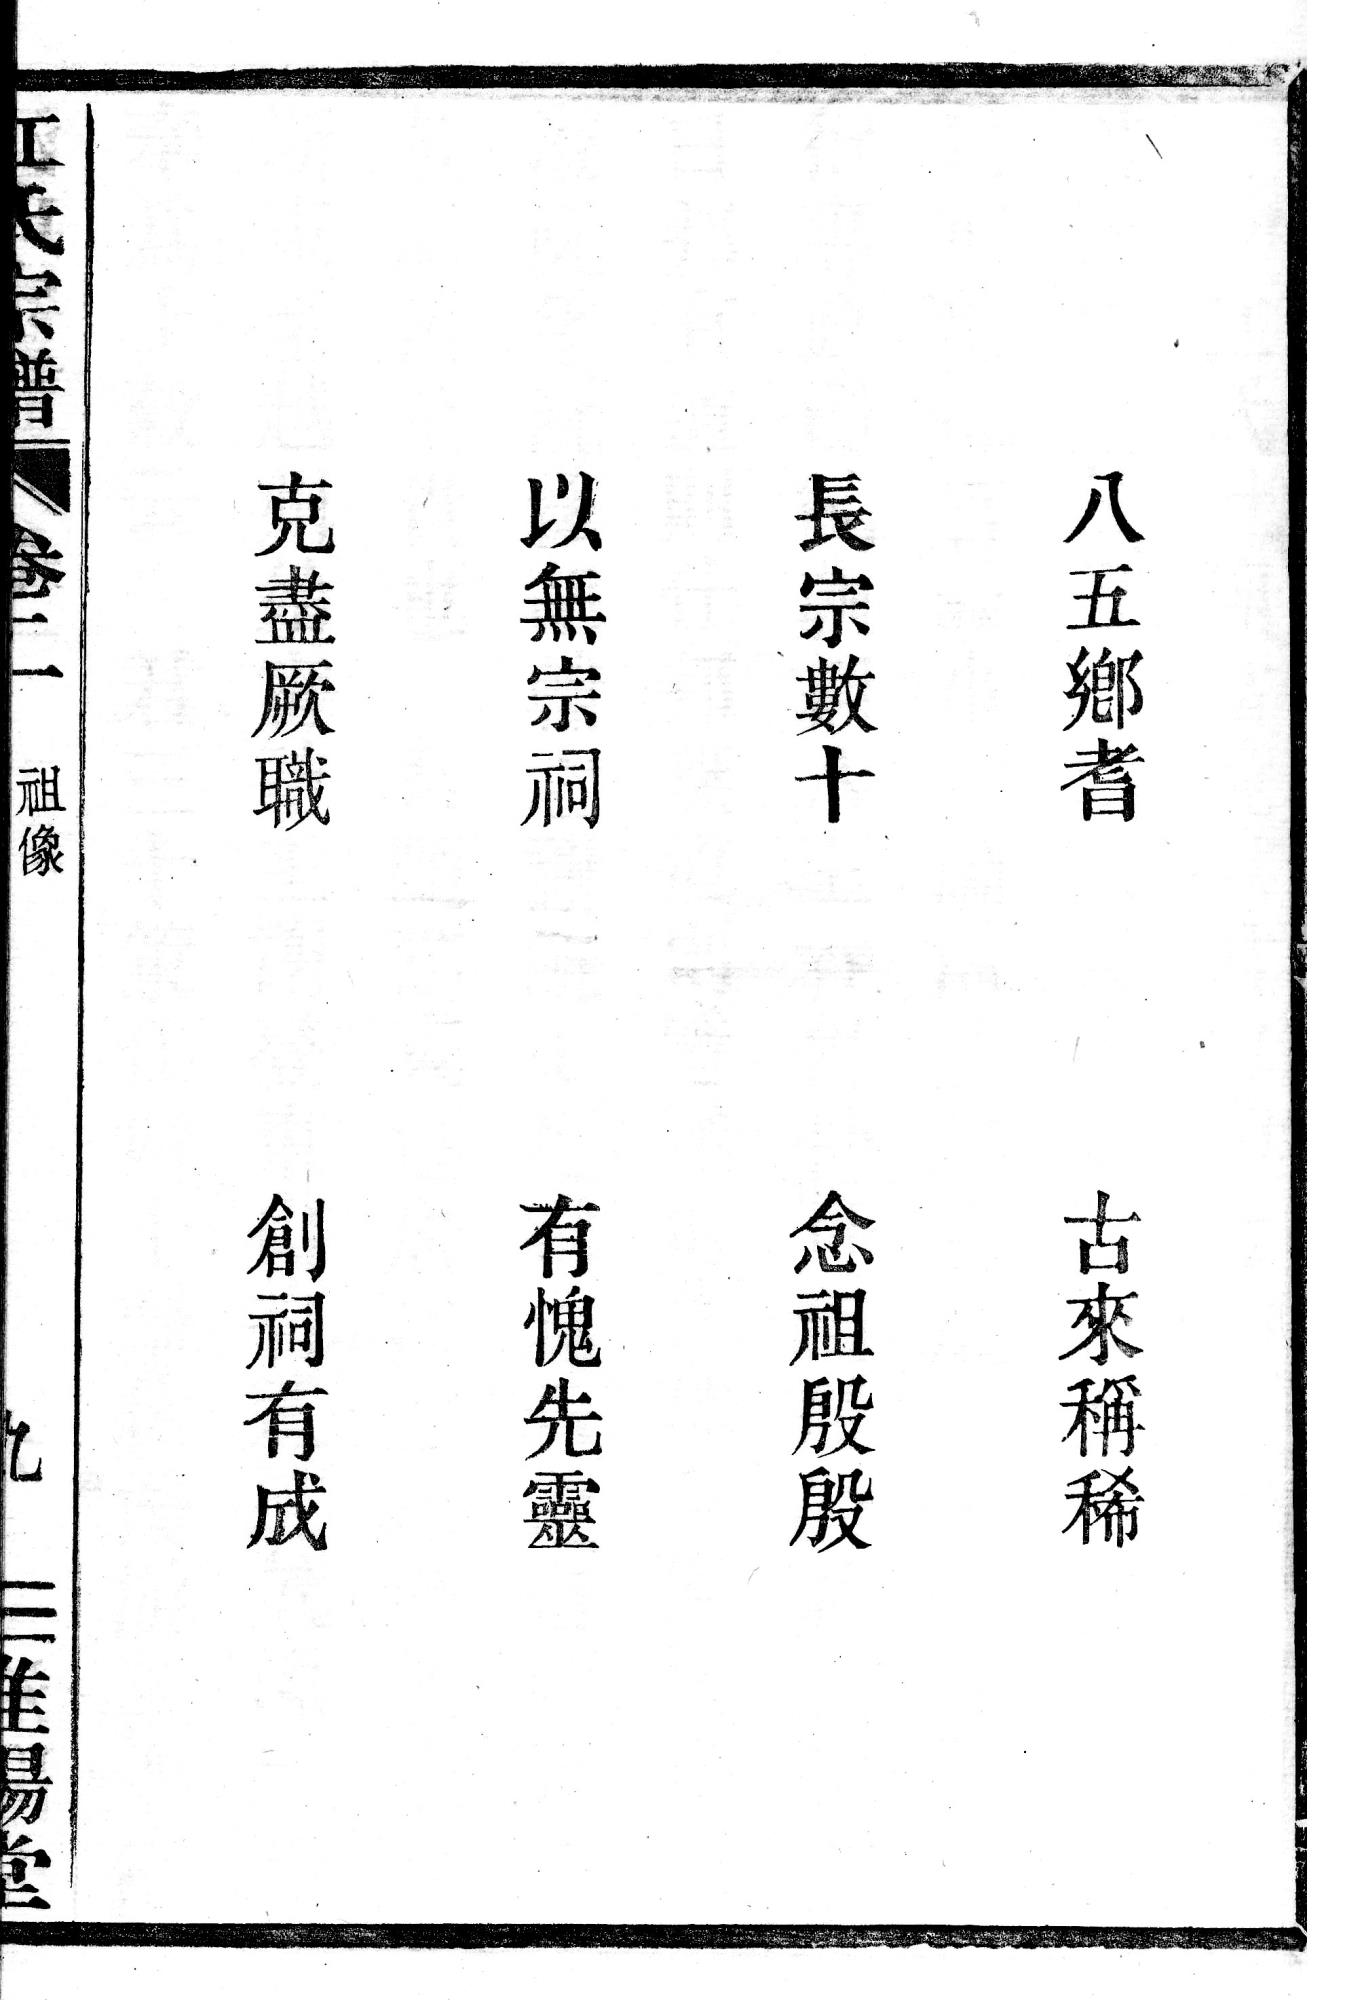 八五鄉耆　古來稱稀
長宗數十　念祖殷殷
以無宗祠　有愧先靈
克盡厥職　創祠有成
江氏宗譜　卷二　祖像　九　淮陽堂